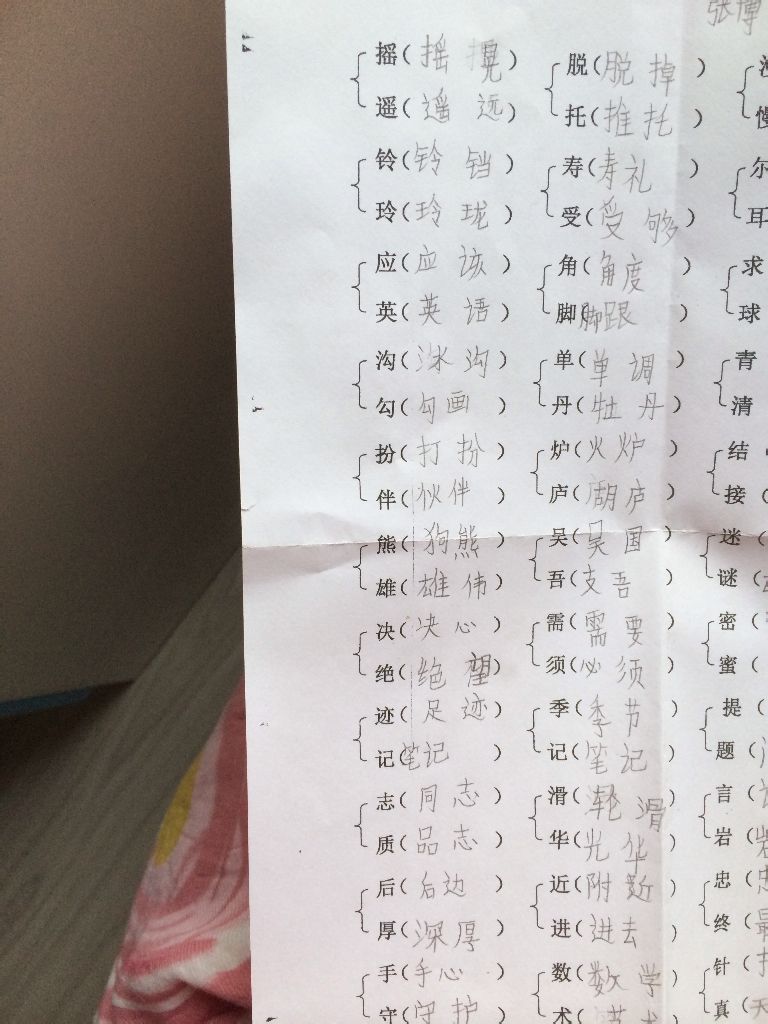 张博
摇(摇晃)
遥(遥远)
铃(铃铛)
玲(玲珑)
应(应该)
英(英语)
沟(沟)
勾(勾画)
扮(打扮)
伴(伙伴)
熊(狗熊)
雄(雄伟)
决(决心)
绝(绝望)
迹(足迹)
记(笔记)
志(同志)
质(品志)
后(后边)
厚(深厚)
手(手心)
守(守护
脱(脱掉)
托(推托)
寿(寿礼)
受(受够)
角(角度)
脚(脚跟)
单(单调)
丹(牡丹)
炉(火炉)
庐(湖庐)
吴(吴国)
吾(支吾)
需(需要)
须(必须)
季(季节)
记(笔记)
滑(轮滑)
华(光华)
近(附近)
进(进去)
数(数学)
术(艺术
慢
尔
耳
求
球
青
清
结
接(
迷(
谜(
密(
蜜(
提(
题(
言(
岩(岩
忠(忠
终(最
针(
真(天